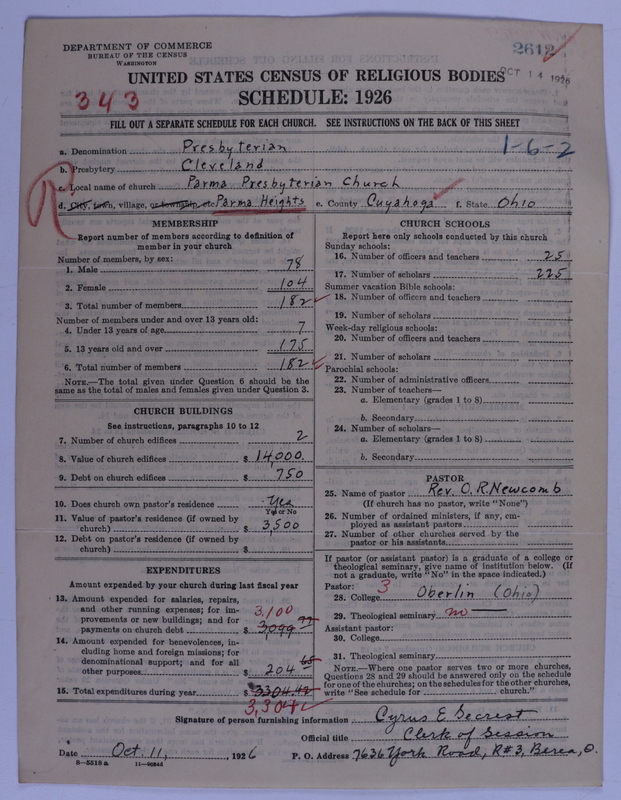 DEPARTMENT OF COMMERCE
BUREAU OF THE CENSUS
WASHINGTON
2612
OCT 14 1926
UNITED STATES CENSUS OF RELIGIOUS BODIES
343
SCHEDULE: 1926
FILL OUT A SEPARATE SCHEDULE FOR EACH CHURCH. SEE INSTRUCTIONS ON THE BACK OF THIS SHEET
a. Denomination Presbyterian
1-6-2
b. Presbytery Cleveland
c. Local name of church Parma Presbyterian Church
R
d. City, town, village, or township, etc Parma Heights e. County Cuyahoga f. State Ohio
MEMBERSHIP
Report number of members according to definition of
member in your church
Number of members, by sex:
1. Male 78
2. Female 104
3. Total number of members 182
Number of members under and over 13 years old:
4. Under 13 years of age 7
5. 13 years old and over 175
6. Total number of members 182
NOTE.—The total given under Question 6 should be the
same as the total of males and females given under Question 3.
CHURCH BUILDINGS
See instructions, paragraphs 10 to 12
7. Number of church edifices 2
8. Value of church edifices $ 14,000.
9. Debt on church edifices $ 750
10. Does church own pastor's residence Yes
Yes or No
11. Value of pastor's residence (if owned by
church) $ 3,500
12. Debt on pastor's residence (if owned by
church) $
EXPENDITURES
Amount expended by your church during last fiscal year
13. Amount expended for salaries, repairs,
and other running expenses; for im-
provements or new buildings; and for
payments on church debt $ 3099 77
3,100
14. Amount expended for benevolences, in-
cluding home and foreign missions; for
denominational support; and for all
other purposes $ 204 65
15. Total expenditures during year $ 3304.42
3,304
CHURCH SCHOOLS
Report here only schools conducted by this church
Sunday schools:
16. Number of officers and teachers 25
17. Number of scholars 225
Summer vacation Bible schools:
18. Number of officers and teachers
19. Number of scholars
Week-day religious schools:
20. Number of officers and teachers
21. Number of scholars
Parochial schools:
22. Number of administrative officers
23. Number of teachers—
a. Elementary (grades 1 to 8)
b. Secondary
24. Number of scholars—
a. Elementary (grades 1 to 8)
b. Secondary
PASTOR
25. Name of pastor Rev. O. R. Newcomb
(If church has no pastor, write "None")
26. Number of ordained ministers, if any, em-
ployed as assistant pastors
27. Number of other churches served by the
pastor or his assistants
If pastor (or assistant pastor) is a graduate of a college or
theological seminary, give name of institution below. (If
not a graduate, write "No" in the space indicated.)
Pastor:
3
28. College Oberlin (Ohio)
29. Theological seminary no
Assistant pastor:
30. College
31. Theological seminary
NOTE.—Where one pastor serves two or more churches,
Questions 28 and 29 should be answered only on the schedule
for one of the churches; on the schedules for the other churches,
write "See schedule for church."
Signature of person furnishing information Cyrus E. Secrest
Official title Clerk of Session
Date Oct. 11, 1926 P. O. Address 7636 York Road, R#3, Berea, O.
8—5518 a 11—90846